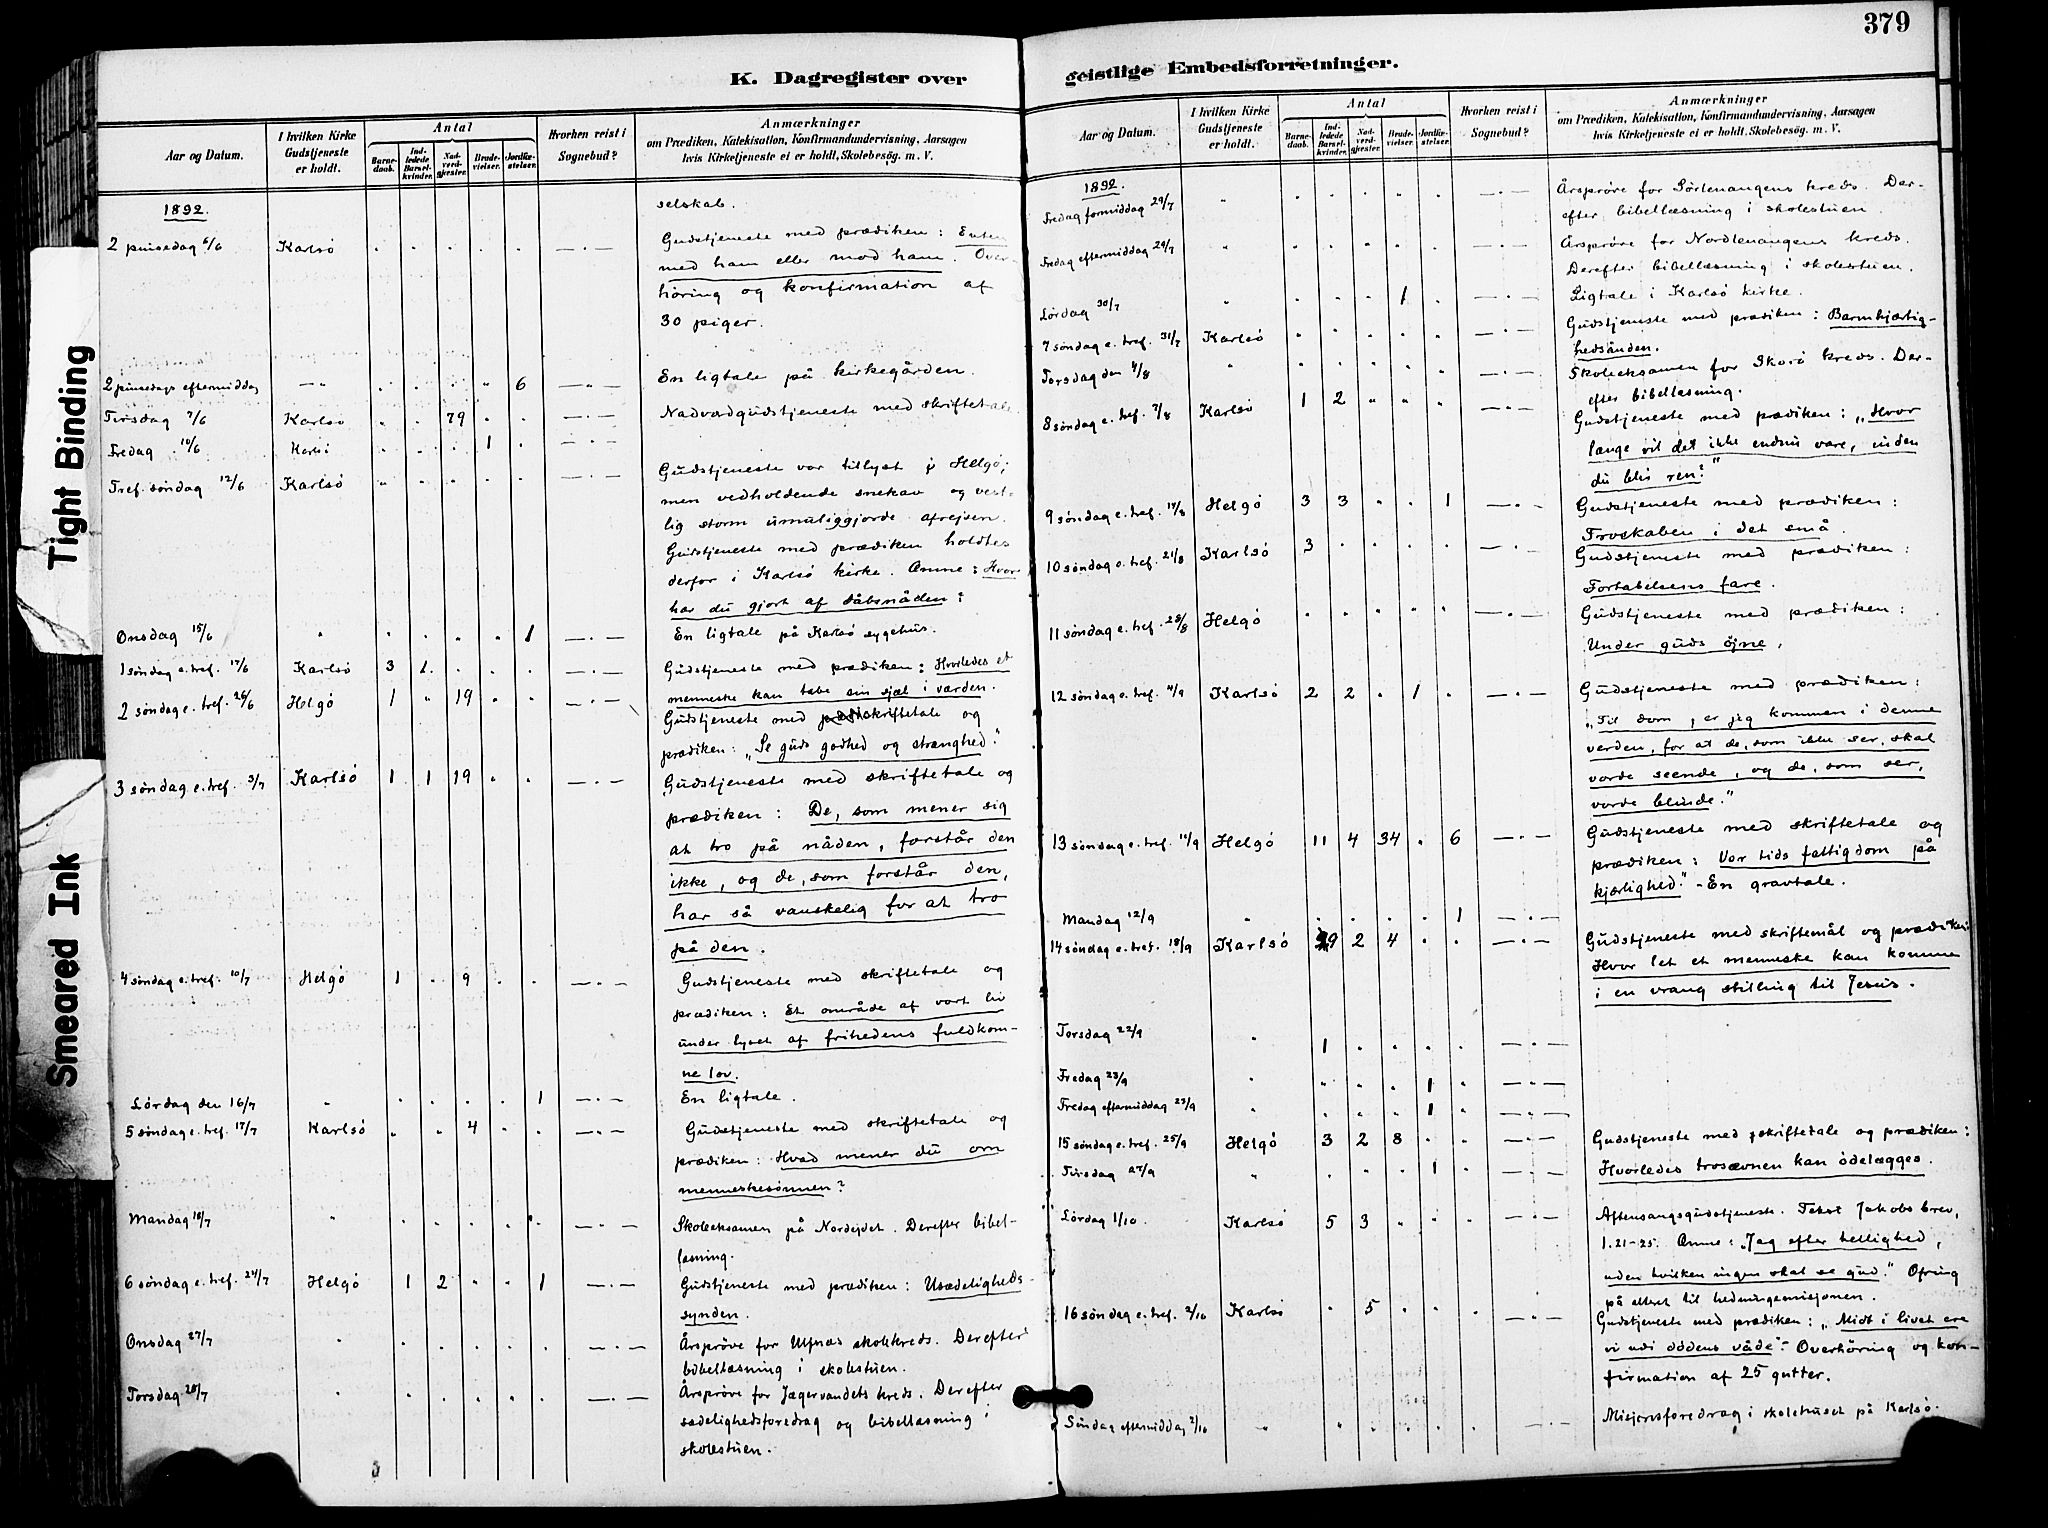 379
K. Dagregister over
geistlige Embedsforretninger.
Aar og Datum.
I hvilken Kirke Gudstjeneste er holdt.
Antal
Barnedaab.
Indledede Barselkvinder.
Nadverdgjæster.
Brudevielser.
Jordfæstelser.
Hvorhen reist i Sognebud?
Anmærkninger
om Prædiken, Katekisation, Konfirmandundervisning, Aarsagen
hvis Kirketjeneste ei er holdt, Skolebesøg. m. V.
1892.
selskab.
2 pinsedag 6/6 Karlsö " " " " " —"— Gudstjeneste med prædiken: Enten
med ham eller mod ham. Over-
höring og konfirmation af
30 piger.
2 pinsedags eftermiddag —" " " " " 6 —"— En ligtale på kirkegården.
Tirsdag 7/6 Karlsö " " 79 " " —"— Nadverdgudstjeneste med skriftetale.
Fredag 10/6 Karlsö " " " 1 " —"—
Tref. söndag 12/6 Karlsö " " " " " —"— Gudstjeneste var tillyst på Helgö;
men vedholdende snekav og vest-
lig storm umuliggjorde afrejsen.
Gudstjeneste med prædiken holdtes
derfor i Karlsö kirke. Emne: Hvor
har du gjort af dåbsnåden?
Onsdag 15/6 " " " " " 1 —"— En ligtale på Karlsö sygehus.
1 söndag e. tref. 19/6 Karlsö 3 1 " " " —"— Gudstjeneste med prædiken: Hvorledes et
menneske kan tabe sin sjæl i verden.
2 söndag e. tref. 26/6 Helgö 1 " 19 " " —"— Gudstjeneste med skriftetale og
prædiken: „Se guds godhed og strenghed."
3 söndag e. tref. 3/7 Karlsö 1 1 19 " " —"— Gudstjeneste med skriftetale og
prædiken: De, som mener sig
at tro på nåden, forstår den
ikke, og de, som forstår den,
har så vanskelig for at tro
på den.
4 söndag e. tref. 10/7 Helgö 1 " 9 " " —"— Gudstjeneste med skriftetale og
prædiken: Et område af vort liv
under lyset af frihedens fuldkom-
ne lov.
Lördag den 16/7 " " " " " 1 —"— En ligtale.
5 söndag e. tref. 17/7 Karlsö " " 4 " " —"— Gudstjeneste med skriftetale og
prædiken: Hvad mener du om
menneskesönnen?
Mandag 18/7 " " " " " " —"— Skoleeksamen på Nordejdet. Derefter bibel-
læsning.
6 söndag e. tref. 24/7 Helgö 1 2 " " 1 —"— Gudstjeneste med prædiken: Usædeligheds-
synden.
Onsdag 27/7 " " " " " " —"— Årspröve for Ulfnæs skolekreds. Derefter
bibellæsning i skolestuen.
Torsdag 28/7 " " " " " " —"— Årspröve for Jægervandets kreds. Derefter
sædelighedsforedrag og bibellæsning i
skolestuen.
Aar og Datum.
I hvilken Kirke Gudstjeneste er holdt.
Antal
Barnedaab.
Indledede Barselkvinder.
Nadverdgjæster.
Brudevielser.
Jordfæstelser.
Hvorhen reist i Sognebud?
Anmærkninger
om Prædiken, Katekisation, Konfirmandundervisning, Aarsagen
hvis Kirketjeneste ei er holdt, Skolebesög. m. V.
1892.
Fredag formiddag 29/7 " " " " " " —"— Årspröve for Sörlenangens kreds. Der-
efter bibellæsning i skolestuen.
Fredag eftermiddag 29/7 " " " " " " —"— Årspröve for Nordlenangens kreds.
Derefter bibellæsning i skolestuen.
Lördag 30/7 " " " " 1 " —"— Ligtale i Karlsö kirke.
7 söndag e. tref. 31/7 Karlsö " " " " " —"— Gudstjeneste med prædiken: Barmhjærtig-
hedsånden.
Torsdag den 4/8 " " " " " " —"— Skoleeksamen for Skorö kreds. Der-
efter bibellæsning.
8 söndag e. tref. 7/8 Karlsö 1 2 " " " —"— Gudstjeneste med prædiken: „Hvor
længe vil det ikke endnu vare, inden
du blir ren?"
9 söndag e. tref. 14/8 Helgö 3 3 " " 1 —"— Gudstjeneste med prædiken:
Troskaben i det små.
10 söndag e. tref. 21/8 Karlsö 3 " " " " —"— Gudstjeneste med prædiken:
Fortabelsens fare.
11 söndag e. tref. 28/8 Helgö " " " " " —"— Gudstjeneste med prædiken:
Under guds öjne.
12 söndag e. tref. 4/9 Karlsö 2 2 " 1 " —"— Gudstjeneste med prædiken:
„Til dom, er jeg kommen i denne
verden, for at de, som ikke ser, skal
vorde seende, og de, som ser,
vorde blinde."
13 söndag e. tref. 11/9 Helgö 11 4 34 " 6 —"— Gudstjeneste med skriftetale og
prædiken: Vor tids fattigdom på
kjærlighed." - En gravtale.
Mandag 12/9 " " " " " 1 —"—
14 söndag e. tref. 18/9 Karlsö 9 2 4 " " —"— Gudstjeneste med skriftemål og prædiken:
Hvor let et menneske kan komme
i en vrang stilling til Jesus.
Torsdag 22/9 " 1 " " " " —"—
Fredag 23/9 " " " " 1 " —"—
Fredag eftermiddag 23/9 " " " " 1 " —"—
15 söndag e. tref. 25/9 Helgö 3 2 8 " " —"— Gudstjeneste med skriftetale og prædiken:
Hvorledes trosævnen kan ödelægges.
Tirsdag 27/9 " " " " 1 " —"—
Lördag 1/10 Karlsö 5 3 " " " —"— Aftensangsgudstjeneste. Tekst Jakobs brev,
1.21-25. Emne: „Jag efter hellighed,
uden hvilken ingen skal se gud." Ofring
på alteret til hedningemissjonen.
16 söndag e. tref. 2/10 Karlsö " 5 " " " —"— Gudstjeneste med prædiken: „Midt i livet ere
vi udi dödens våde". Overhöring og kon-
firmation af 25 gutter.
Söndag eftermiddag 2/10 " " " " " " —"— Misjonsforedrag i skolehuset på Karlsö.
Tight Binding
Smeared Ink